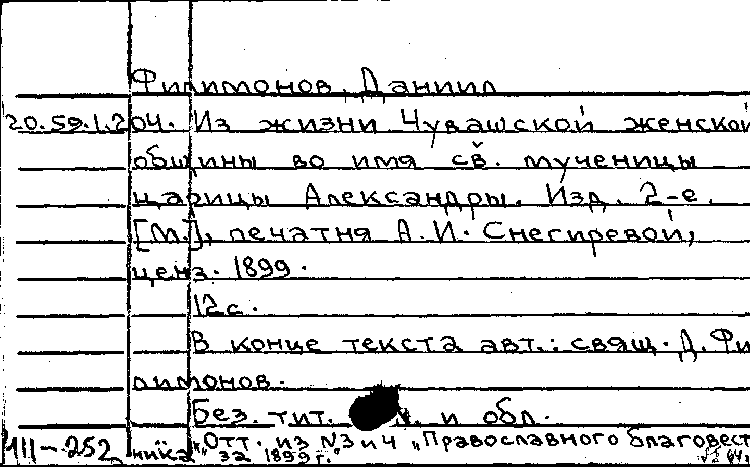 Филимонов, Даниил
20.59.1.204. Из жизни Чувашской женской
общины во имя св. мученицы
царицы Александры. Изд. 2-е.
[М.], печатня А. И. Снегиревой,
ценз. 1899.
12 с.
В конце текста авт.: свящ. Д. Фи-
лимонов.
Без. тит. л. и обл.
"Отт. из №3 и 4 „Православного благовест
111-252 ника" за 1899 г."